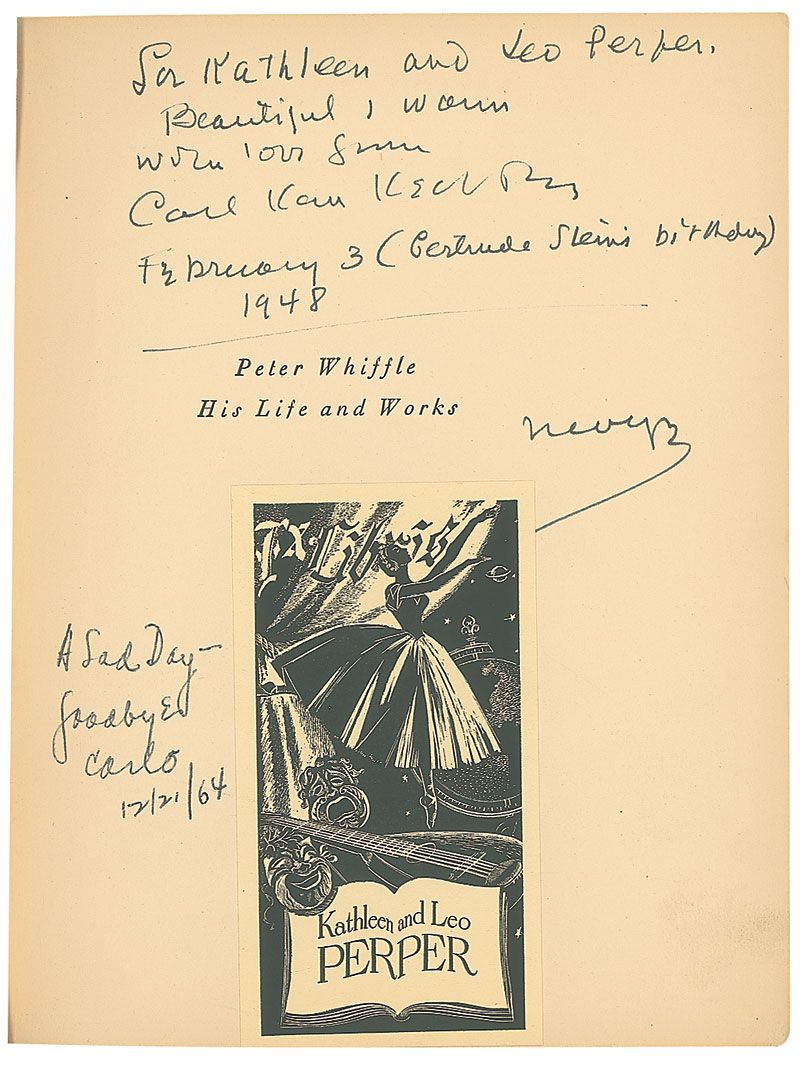 For Kathleen and Leo Perper.
Beautiful &
with
Carl Van Vechten
February 3 (Gertrude Stein's birthday)
1948
Peter Whiffle
His Life and Works
Ex Libris
A Sad Day—
Goodbye
Carlo
12/21/64
Kathleen and Leo
PERPER